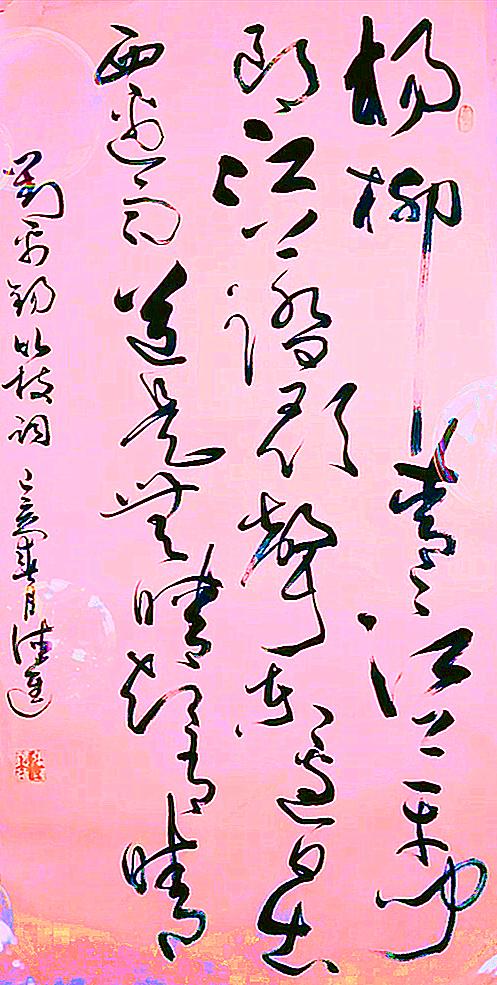 楊柳青〻江水平聞
郎江上踏歌聲東邊日出
西邊雨道是無晴卻有晴
劉禹錫竹枝詞 己亥春月